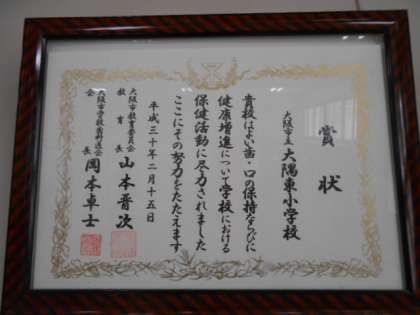 賞状
大阪市立大隅東小学校
貴校はよい歯・口の保持ならびに
健康増進について学校における
保健活動に尽力されました
ここにその努力をたたえます
平成三十年二月十五日
大阪市教育委員会
教育長 山本晋次
大阪市学校歯科医会
会長 岡本卓士